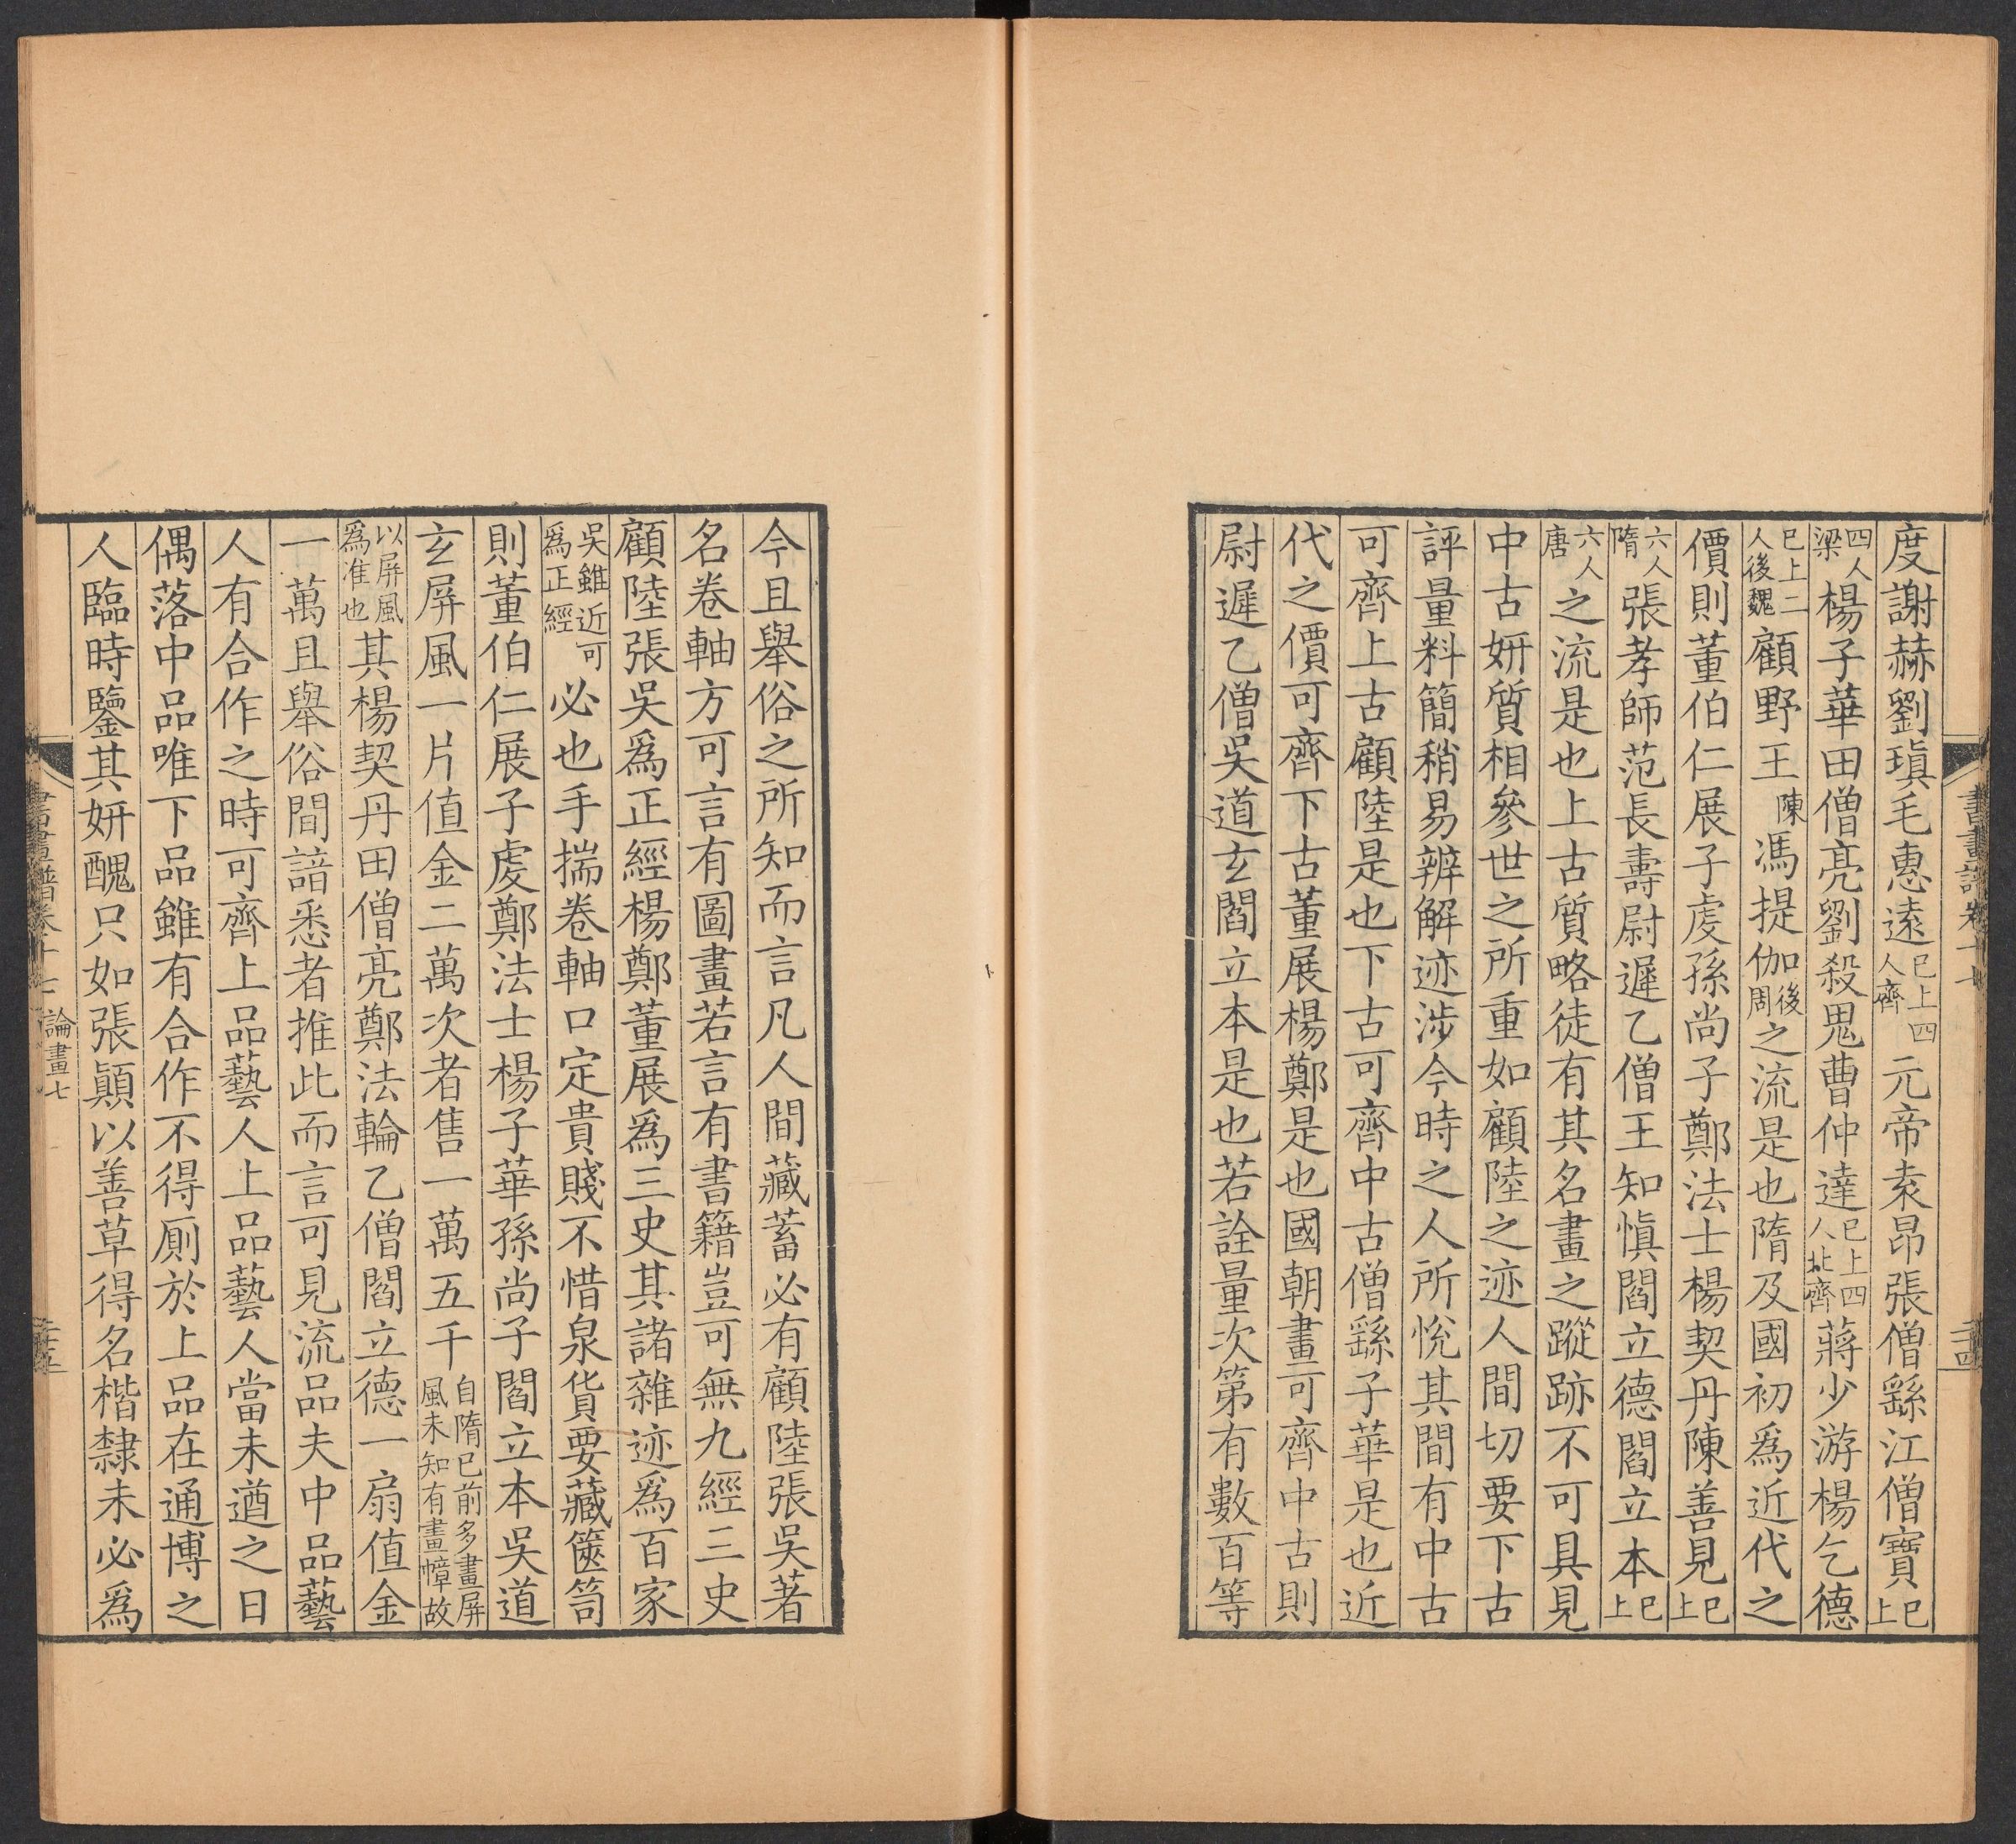 度謝赫劉瑱毛惠遠已上四人齊元帝袁昂張僧繇江僧寶已上
四人梁楊子華田僧亮劉殺鬼曹仲達已上四人北齊蔣少游楊乞德
已上二人後魏顧野王陳馮提伽後周之流是也隋及國初爲近代之
價則董伯仁展子虔孫尚子鄭法士楊契丹陳善見已上
六人隋張孝師范長壽尉遲乙僧王知愼閻立德閻立本已上
六人唐之流是也上古質略徒有其名畫之蹤跡不可具見
中古妍質相參世之所重如顧陸之迹人間切要下古
評量料簡稍易辨解迹涉今時之人所悅其間有中古
可齊上古顧陸是也下古可齊中古僧繇子華是也近
代之價可齊下古董展楊鄭是也國朝畫可齊中古則
尉遲乙僧吳道玄閻立本是也若詮量次第有數百等
書畫譜卷十七
二十四
今且舉俗之所知而言凡人間藏蓄必有顧陸張吳著
名卷軸方可言有圖畫若言有書籍豈可無九經三史
顧陸張吳爲正經楊鄭董展爲三史其諸雜迹爲百家
吳雖近可爲正經必也手揣卷軸口定貴賤不惜泉貨要藏篋笥
則董伯仁展子虔鄭法士楊子華孫尚子閻立本吳道
玄屏風一片值金二萬次者售一萬五千自隋已前多畫屏風未知有畫幛故
以屏風爲准也其楊契丹田僧亮鄭法輪乙僧閻立德一扇值金
一萬且舉俗間諳悉者推此而言可見流品夫中品藝
人有合作之時可齊上品藝人上品藝人當未遒之日
偶落中品唯下品雖有合作不得厠於上品在通博之
人臨時鑒其妍醜只如張顚以善草得名楷隸未必爲
書畫譜卷十七 論畫七
二十五